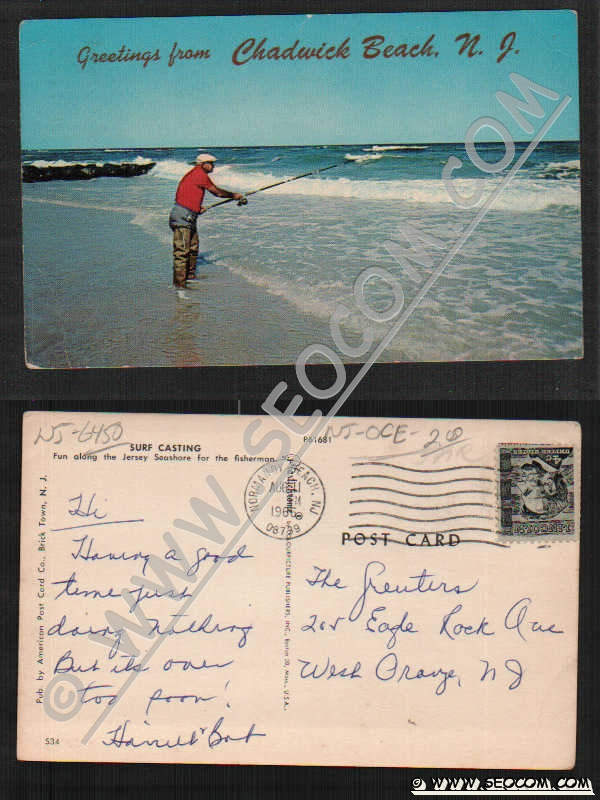 Greetings from Chadwick Beach, N. J.
© WWW.SEOCOM.COM
NJ-6450
NJ-OCE-
SURF CASTING
Fun along the Jersey Seashore for the fisherman.
P61681
NORMANDY BEACH, NJ
AUG
1966
08739
POST CARD
Pub. by American Post Card Co., Brick Town, N. J.
Hi
Having a good
time just
doing nothing
But its over
too soon!
Harriet & Bart
The Greuters
205 Eagle Rock Ave
West Orange, NJ
S34
© WWW.SEOCOM.COM